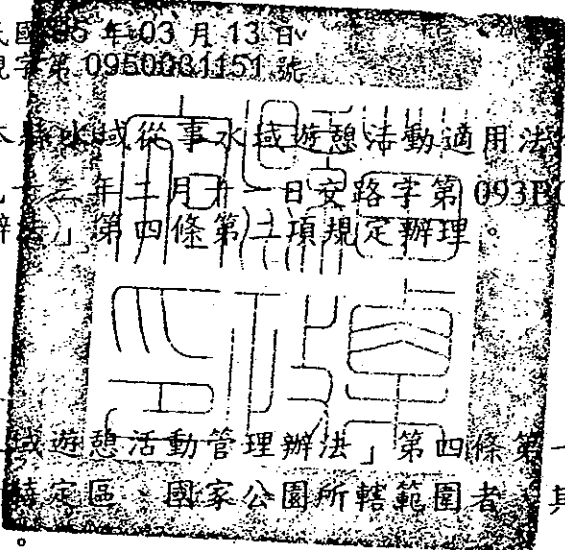 民國95年03月13日
字第0950031151號
本縣水域從事水域遊憩活動適用法
九十三年二月十一日交路字第093B
辦法」第四條第二項規定辦理。
域遊憩活動管理辦法」第四條第一
特定區、國家公園所轄範圍者,其
。